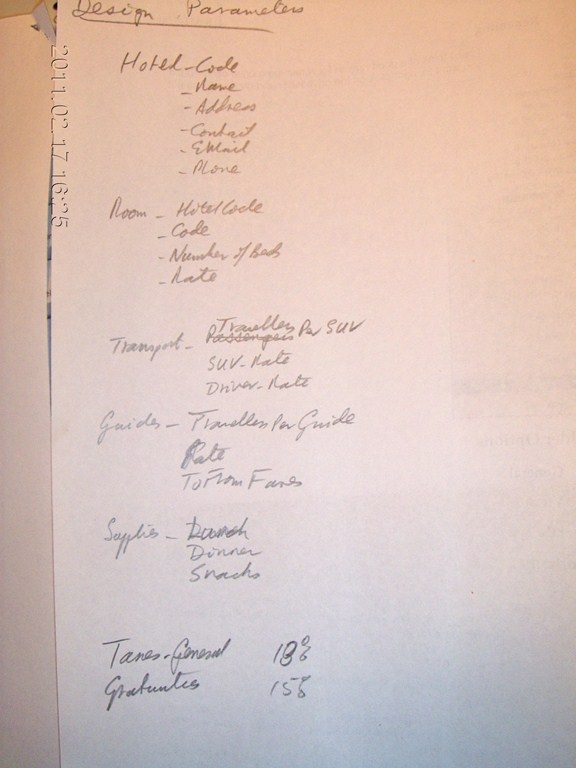 Design Parameters
Hotel - Code
- Name
- Address
- Contact
- EMail
- Phone
Room - HotelCode
- Code
- Number of Beds
- Rate
Transport - Passengers Travellers Per SUV
SUV-Rate
Driver-Rate
Guides - Travellers Per Guide
Rate
ToFromFares
Supplies - Lunch
Dinner
Snacks
Taxes-General 18%
Gratuities 15%
2011.02.17 16:25